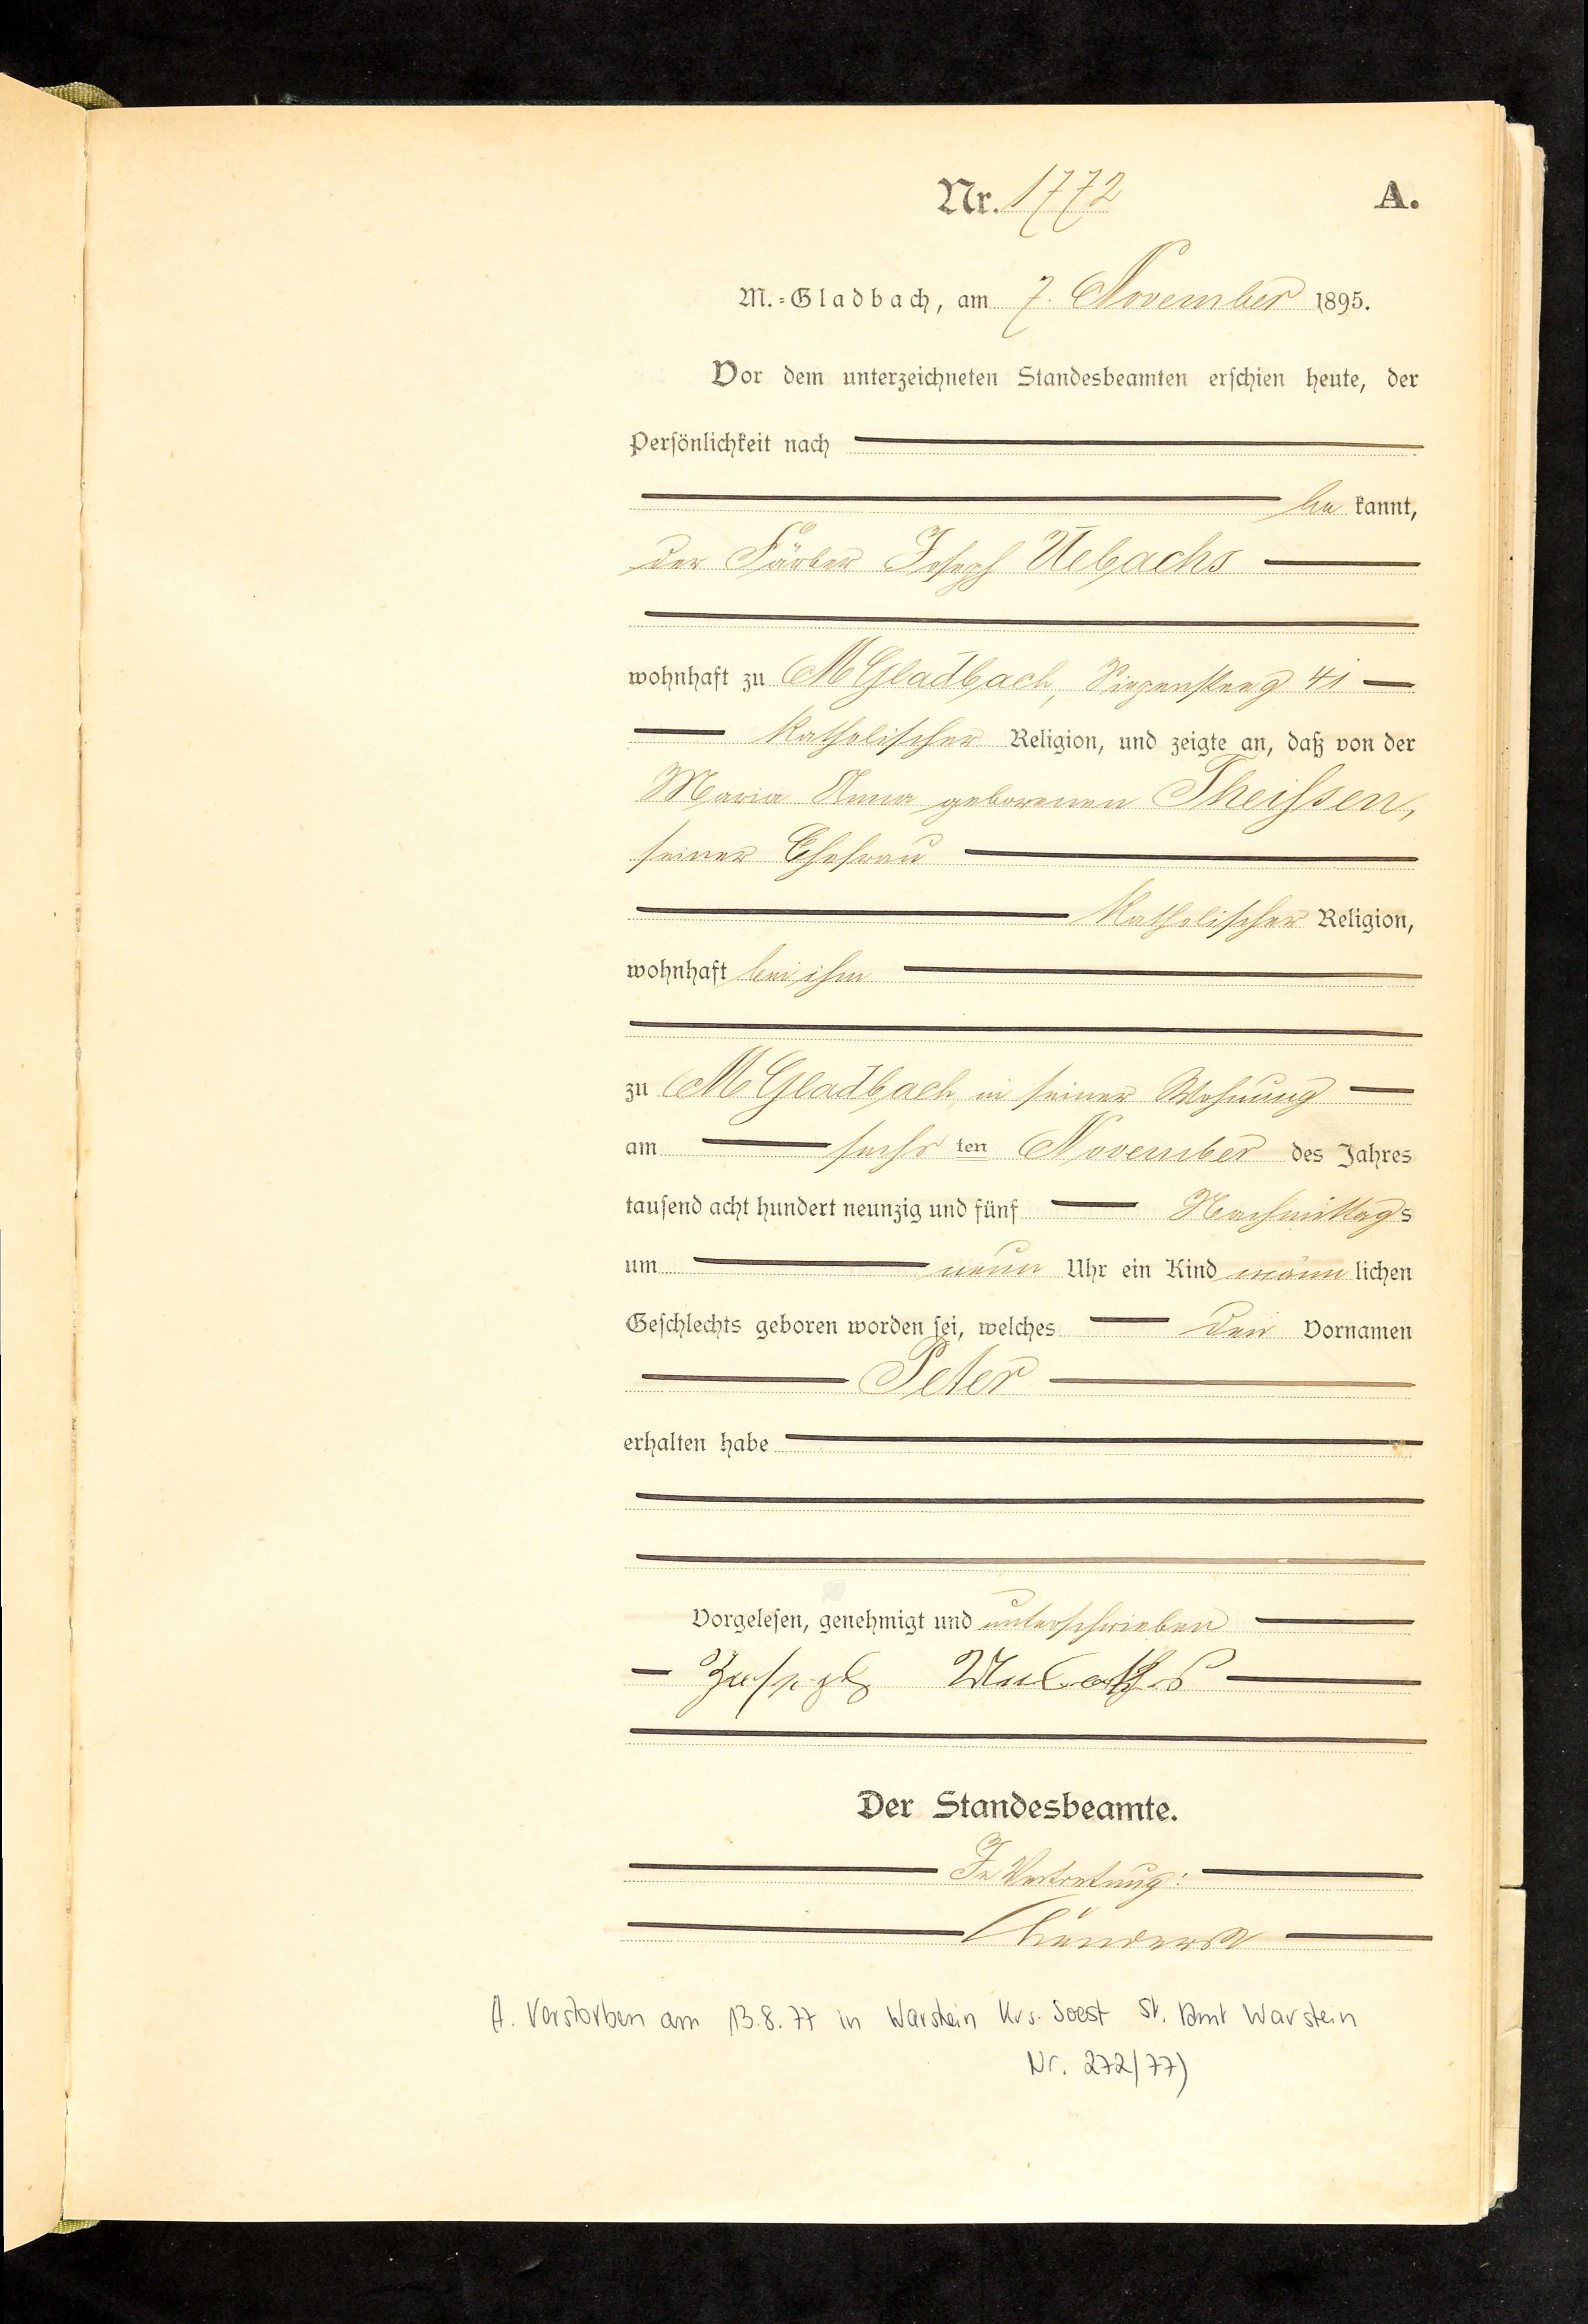 Nr. 1772 A.
M.-Gladbach, am 7. November 1895.
Vor dem unterzeichneten Standesbeamten erschien heute, der
Persönlichkeit nach
be kannt,
der Färber Joseph Uebachs
wohnhaft zu MGladbach, 41
katholischer Religion, und zeigte an, daß von der
Maria Anna geborenen Theissen,
seiner Ehefrau
katholischer Religion,
wohnhaft bei ihm
zu MGladbach in seiner Wohnung
am sechs ten November des Jahres
tausend acht hundert neunzig und fünf Nachmittags
um neun Uhr ein Kind männ lichen
Geschlechts geboren worden sei, welches den Vornamen
Peter
erhalten habe
Vorgelesen, genehmigt und unterschrieben
Joseph
Der Standesbeamte.
In Vertretung:
A. Verstorben am 13.8.77 in Warstein Krs. Soest St. Amt Warstein
Nr. 272/77)